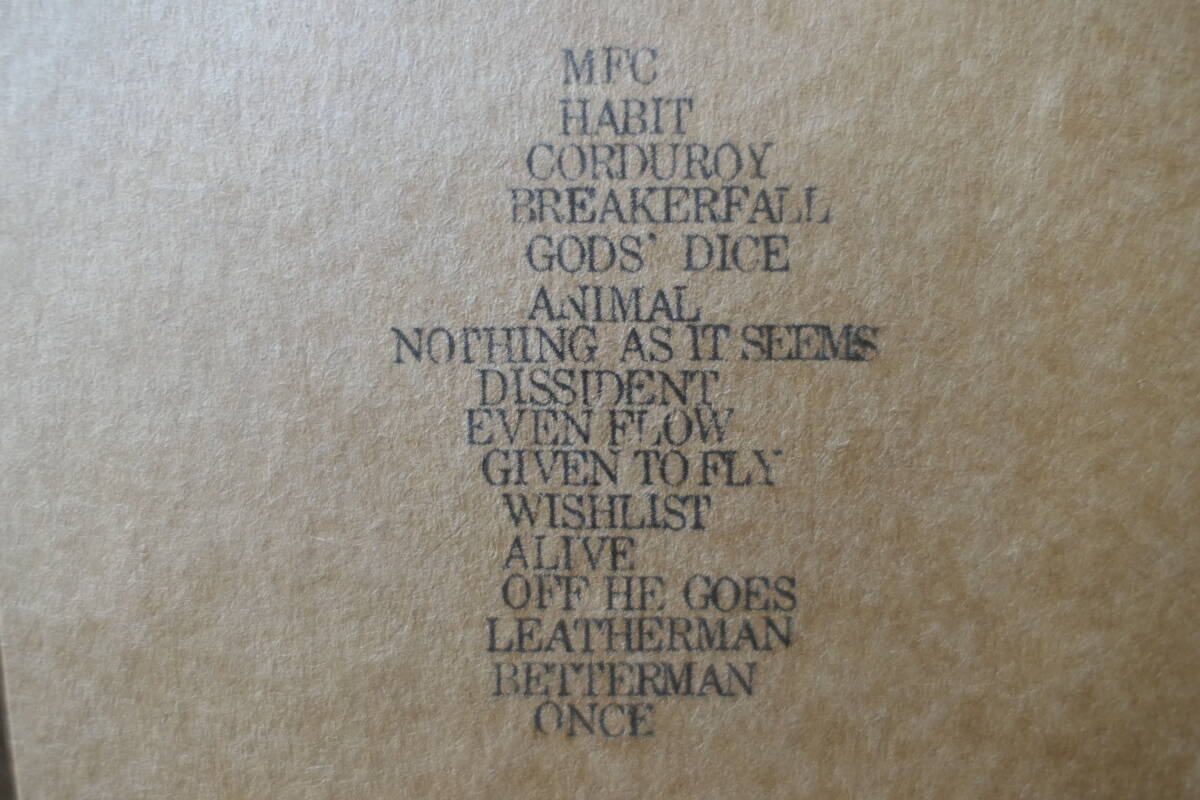 MFC
HABIT
CORDUROY
BREAKERFALL
GODS' DICE
ANIMAL
NOTHING AS IT SEEMS
DISSIDENT
EVEN FLOW
GIVEN TO FLY
WISHLIST
ALIVE
OFF HE GOES
LEATHERMAN
BETTERMAN
ONCE